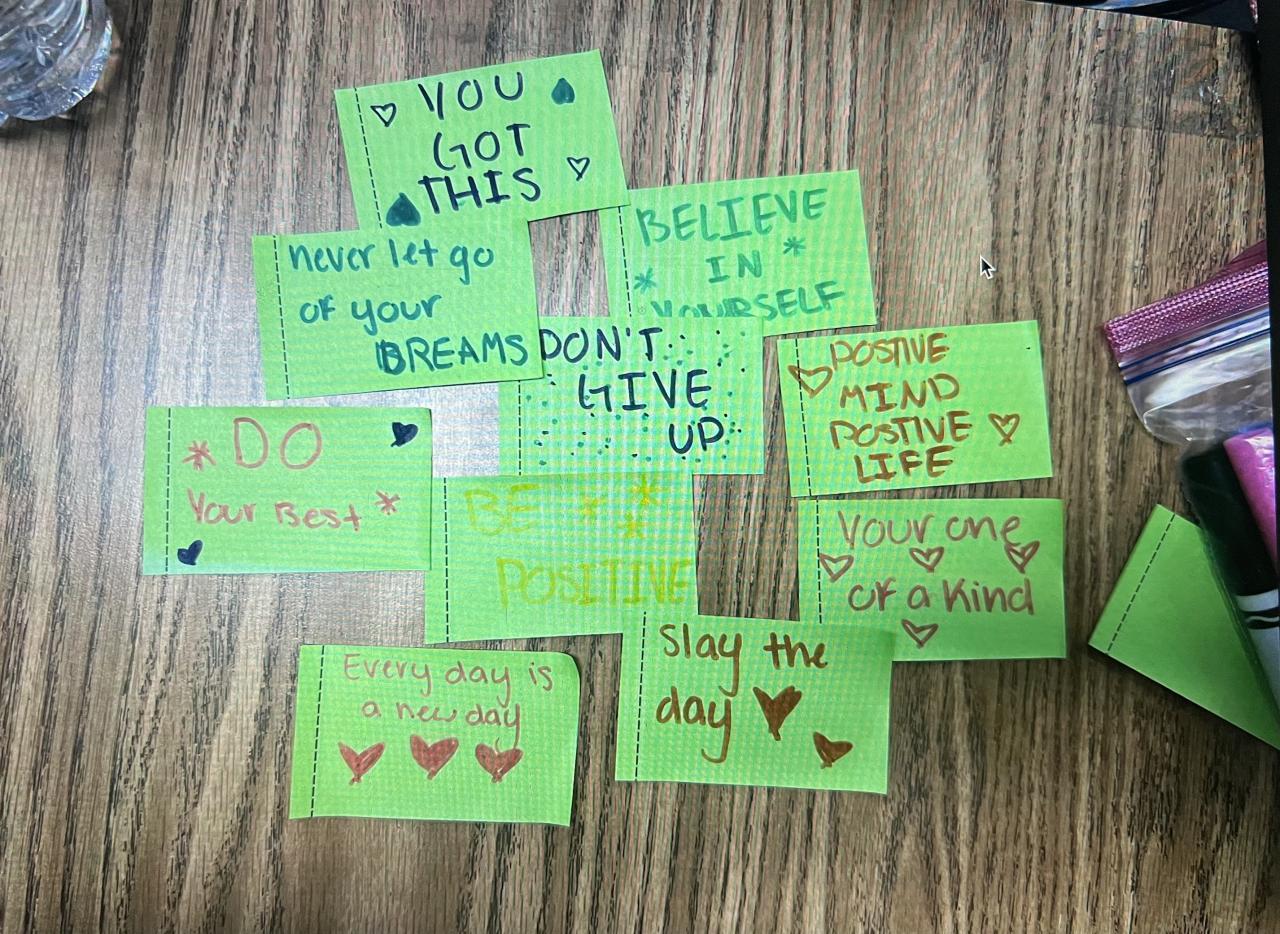 YOU
GOT
THIS
never let go
of your
DREAMS
BELIEVE
IN
YOURSELF
DON'T
GIVE
UP
POSTIVE
MIND
POSTIVE
LIFE
DO
Your Best
BE
POSITIVE
Your one
of a kind
Every day is
a new day
Slay the
day